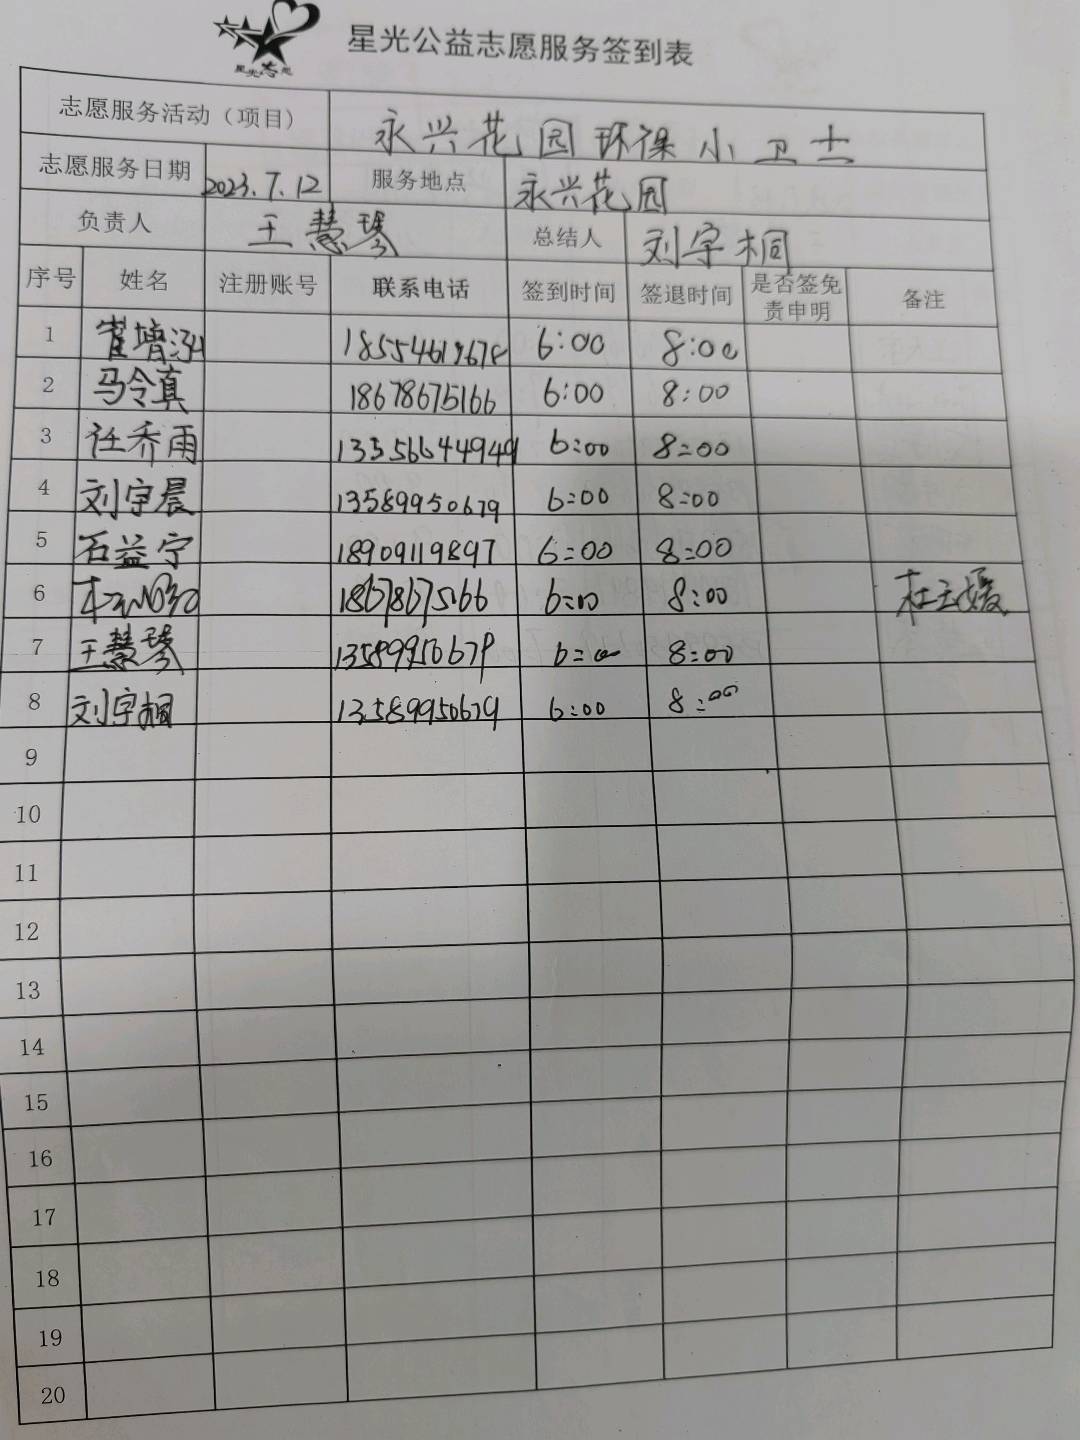 星光公益志愿服务签到表
志愿服务活动（项目） 永兴花园环保小卫士
志愿服务日期 2023.7.12 服务地点 永兴花园
负责人 王慧琴 总结人 刘宇桐
序号 姓名 注册账号 联系电话 签到时间 签退时间 是否签免责申明 备注
1 崔增泓 18554619678 6:00 8:00
2 马令真 18678675166 6:00 8:00
3 任乔雨 13356644949 6:00 8:00
4 刘宇晨 13589950679 6:00 8:00
5 石益宁 18909119897 6:00 8:00
6 18678675166 6:00 8:00 杜玉媛
7 王慧琴 13589950679 6:00 8:00
8 刘宇桐 13589950679 6:00 8:00
9
10
11
12
13
14
15
16
17
18
19
20